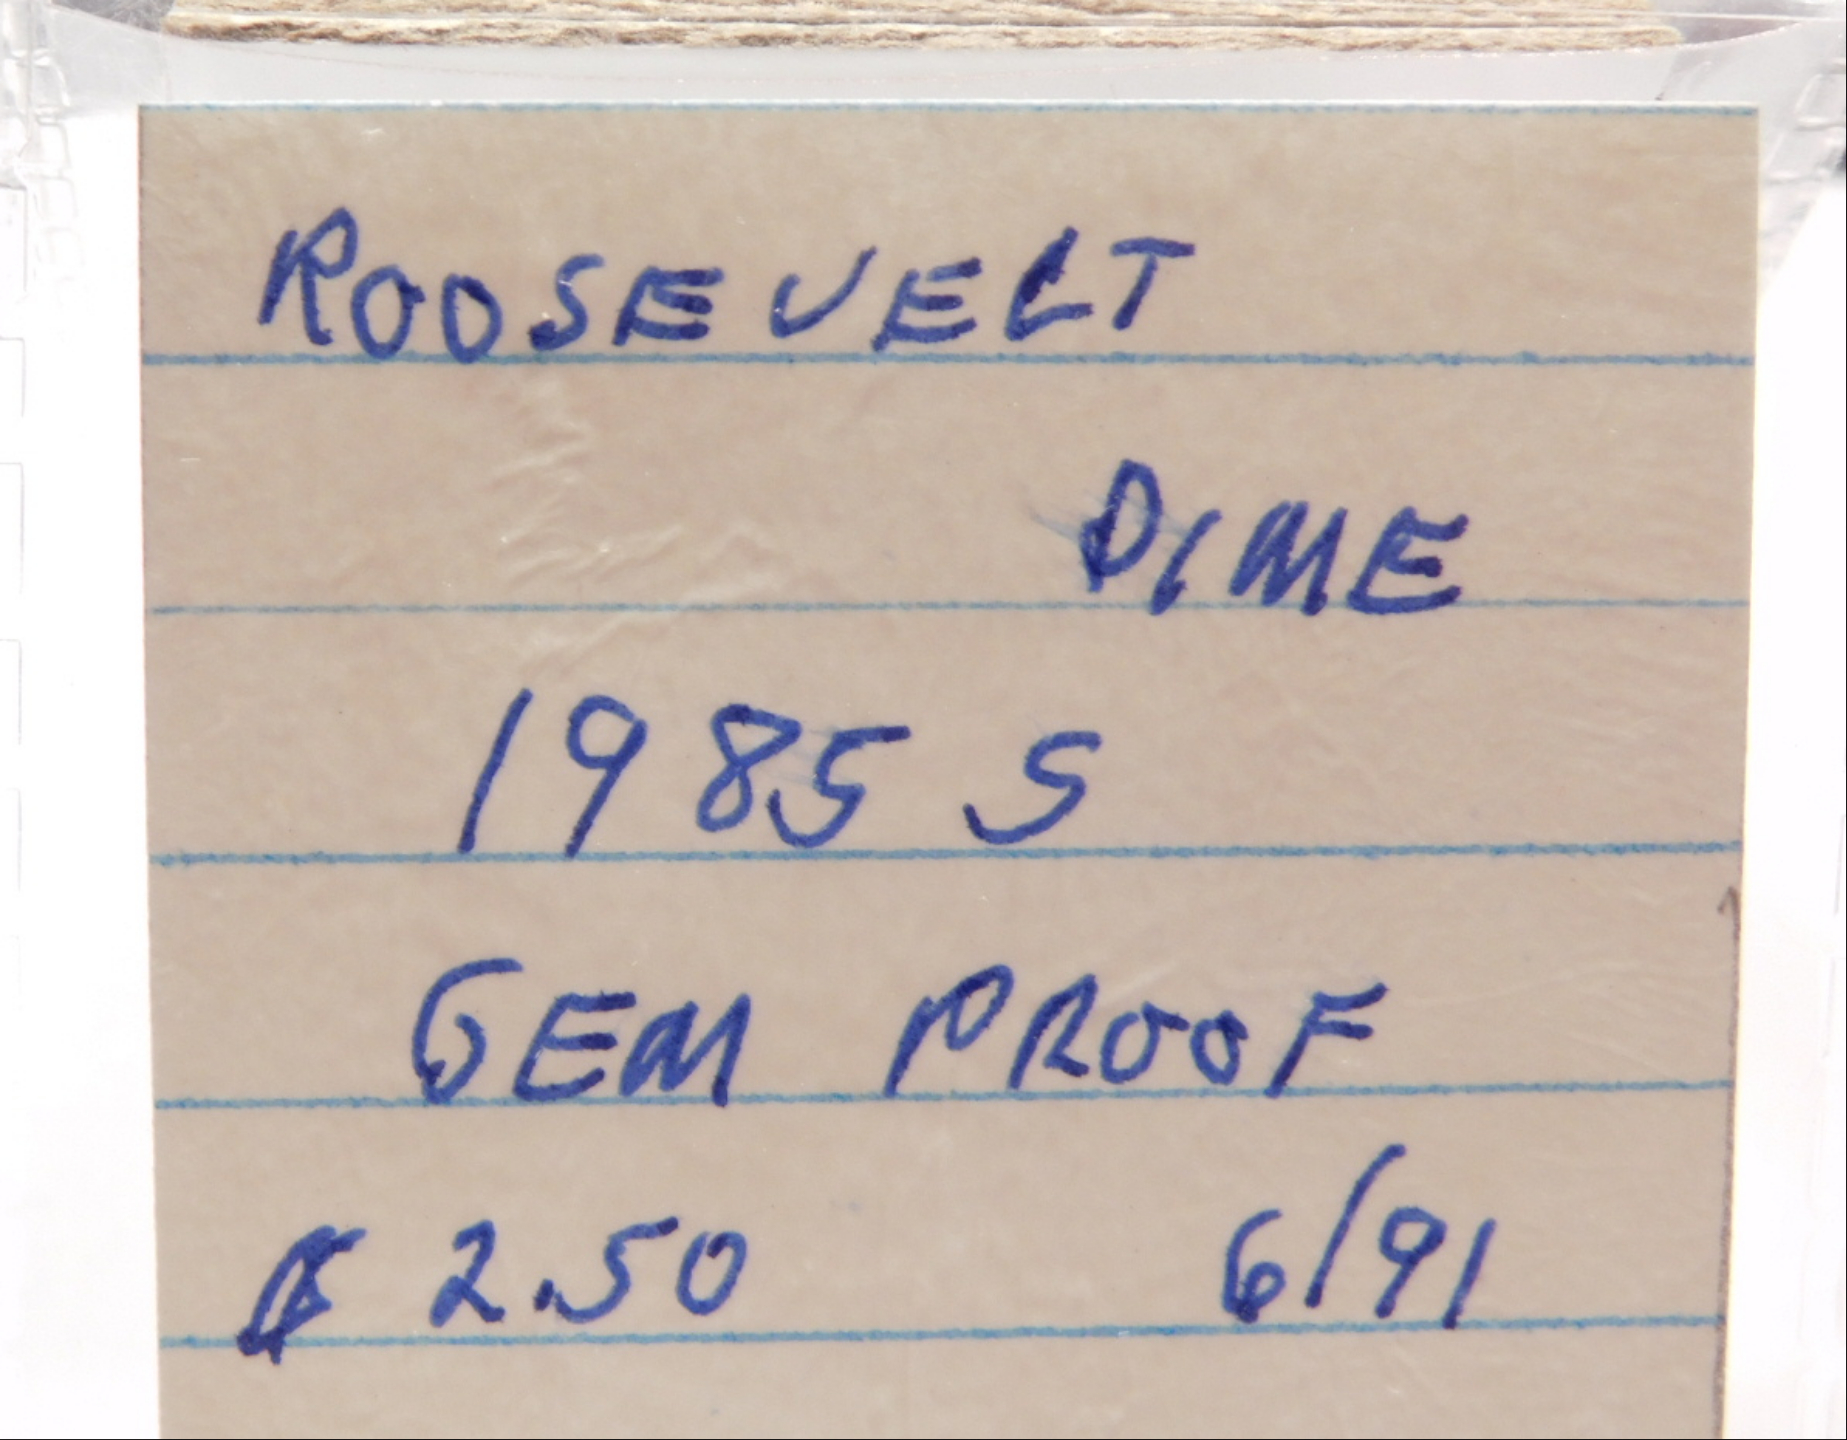 ROOSEVELT
DIME
1985 S
GEM PROOF
$ 2.50 6/91